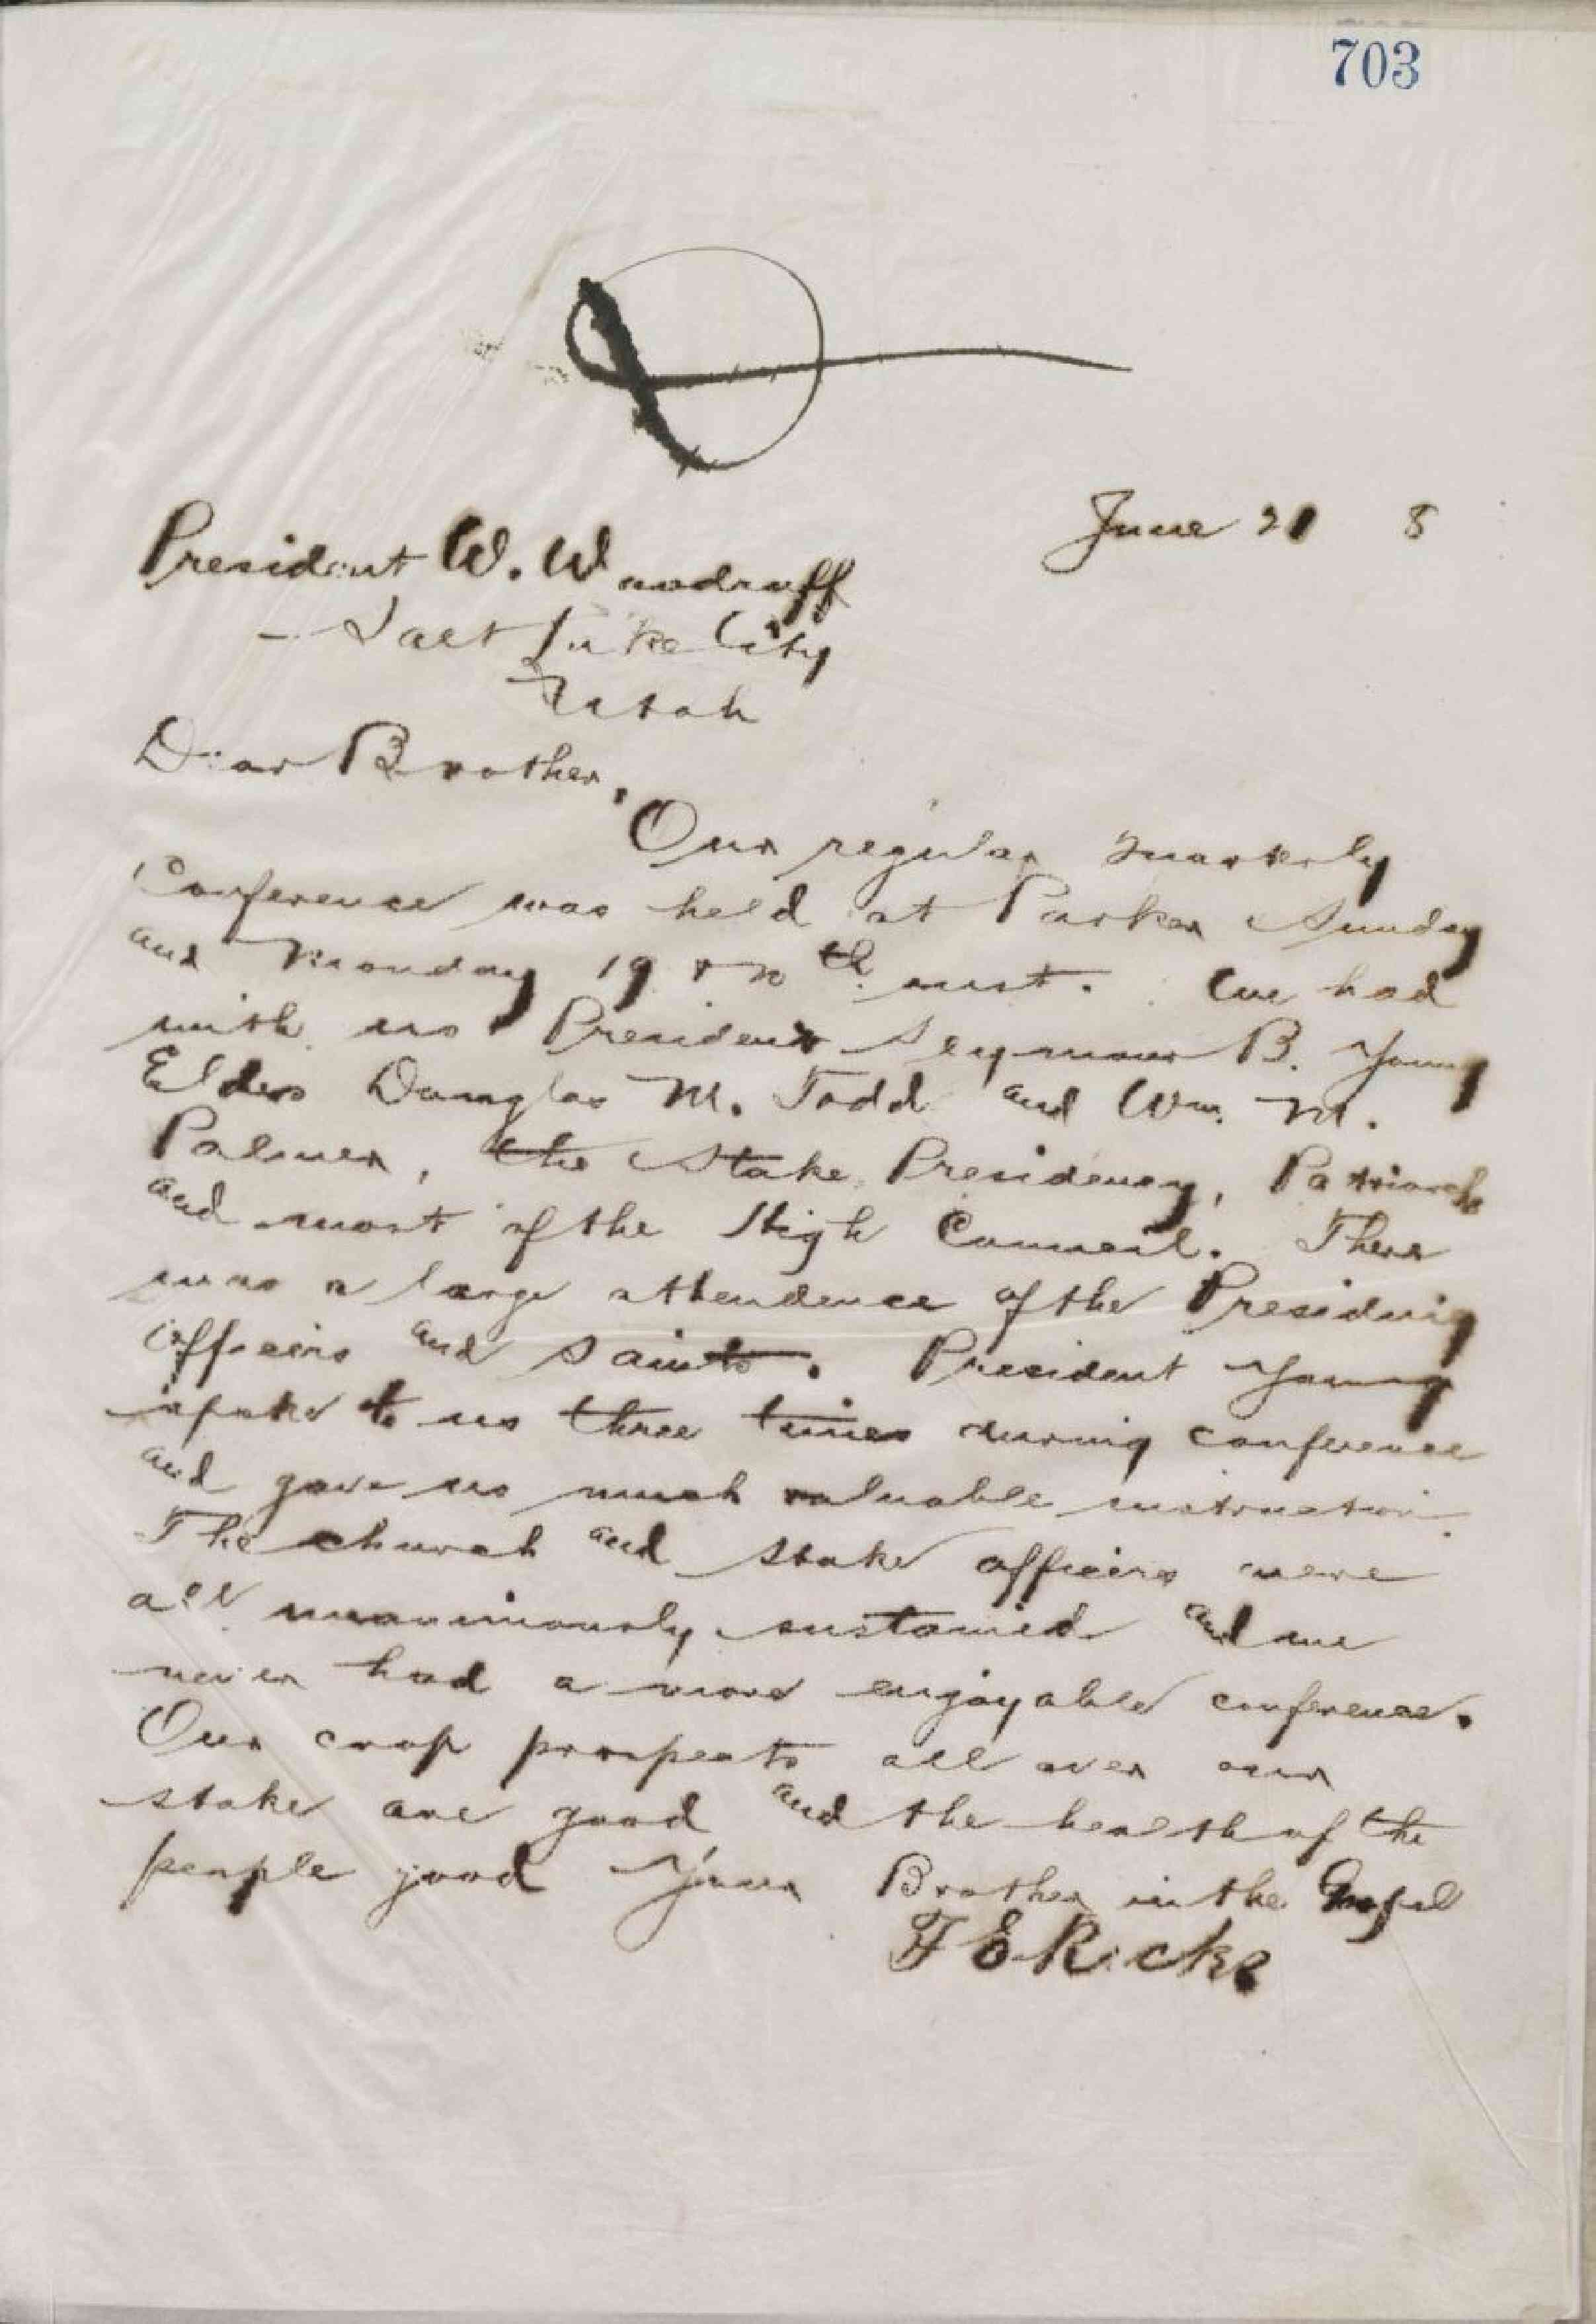 703
June 21 8
President W. Woodruff
Salt Lake City
Utah
Dear Brother,
Our regular quarterly
Conference was held at Parker Sunday
and Monday 19 & 20th inst. We had
with us President Seymour B. Young
Elders Douglas M. Todd and Wm. M.
Palmer, the Stake Presidency, Patriarch
and most of the High Council. There
was a large attendence of the Presiding
Officers and Saints. President Young
spoke to us three times during conference
and gave us much valuable instruction.
The church and Stake officers were
all unanimously sustained and we
never had a more enjoyable conference.
Our crop prospects all over our
stake are good and the health of the
people good Your Brother in the Gospel
T E Ricks